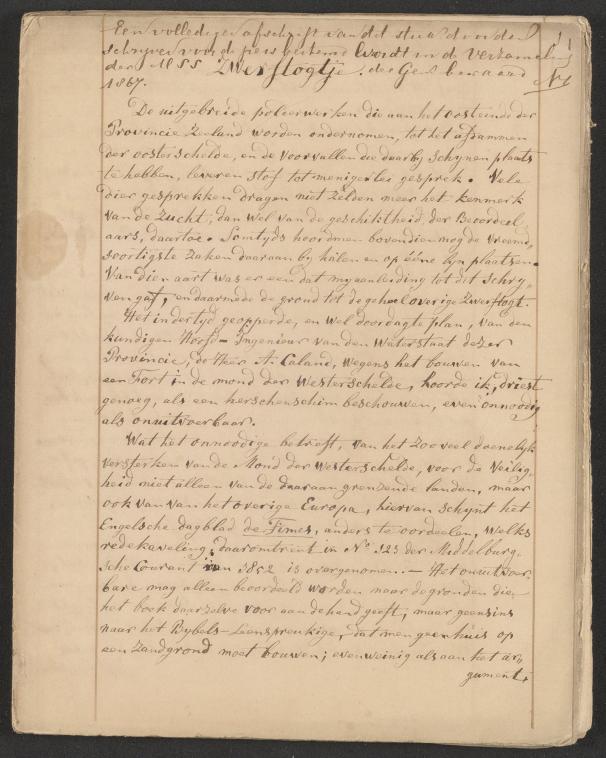 Een volledig afschrift van dit stuk door den
schryver voor de pers bestemd wordt in de Verzameling
der MSS Zwerftogtje. der Gen. bewaard
1867.
De uitgebreide polderwerken die aan het oosteinde der
Provincie Zeeland worden ondernomen, tot het afdammen
der ooster schelde, en de voorvallen die daarby schynen plaats
te hebben, leveren stof tot menigerlei gesprek. Vele
dier gesprekken dragen niet zelden meer het kenmerk
van de zucht, dan wel van de geschiktheid der Beoordeel
aars, daartoe. Somtyds hoord men bovendien nog de vreemd
soortigste zaken daaraan by halen en op eéne lyn plaatsen.
Van dien aart was er een dat my aanleiding tot dit schry-
ven gaf, en daarmede de grond tot de geheel overige Zwerftogt.
Het indertyd geopperde, en wel doordagte plan, van den
kundigen Hoofd-Ingenieur van den Waterstaat dezer
Provincie, de Heer A. Caland, wegens het bouwen van
een Fort in de mond der Westerschelde, hoorde ik, driest
genoeg, als een herschenschim beschouwen, even onnoodig
als onuitvoerbaar.
Wat het onnoodige betreft, van het zoo veel doenelyk
versterken van de Mond der Westerschelde, voor de veilig-
heid niet alleen van de daaraan grenzende landen, maar
ook van van het overige Europa, hiervan schynt het
Engelsche dagblad de Times, anders te oordeelen, welks
redekaveling daaromtrent in No 123 der Middelburg-
sche Courant van 1852 is overgenomen. — Het onuitvoer-
bare mag alleen beoordeeld worden naar de gronden die
het boek daarzelve voor aan de hand geeft; maar geensins
naar het Bybels-Leenspreukige, dat men geen huis op
een zandgrond moet bouwen; evenweinig als aan het ar-
gument,